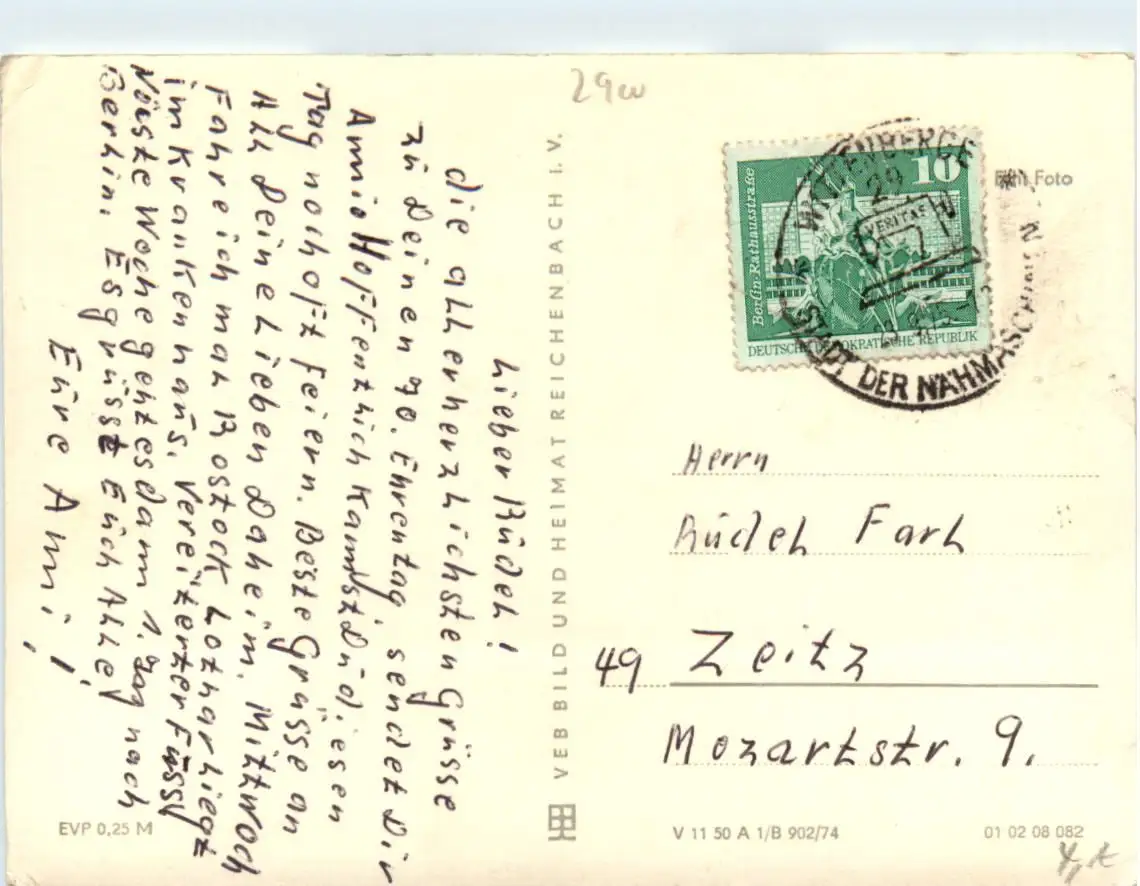 29w
Lieber Rüdel!
die allerherzlichsten Grüsse
zu Deinen 70. Ehrentag, sendet Dir
Ami. Hoffentlich kannst Du diesen
Tag noch oft feiern. Beste Grüsse an
All Deine Lieben Daheim. Mittwoch
Fahre ich mal Rostock Lothar liegt
im Krankenhaus. Vereiterter Fuss
Näste Woche gehtesdann 1. Tag nach
Berlin. Es grüsst Euch Alle
Eure Ami!
VEB BILD UND HEIMAT REICHENBACH I. V.
EVP 0,25 M
10
Berlin-Rathausstraße
DEUTSCHE DEMOKRATISCHE REPUBLIK
WITTENBERGE
29
VERITAS
STADT DER NÄHMASCHINEN
Foto
Herrn
Rüdel Farl
49 Zeitz
Mozartstr. 9.
V 11 50 A 1/B 902/74
01 02 08 082